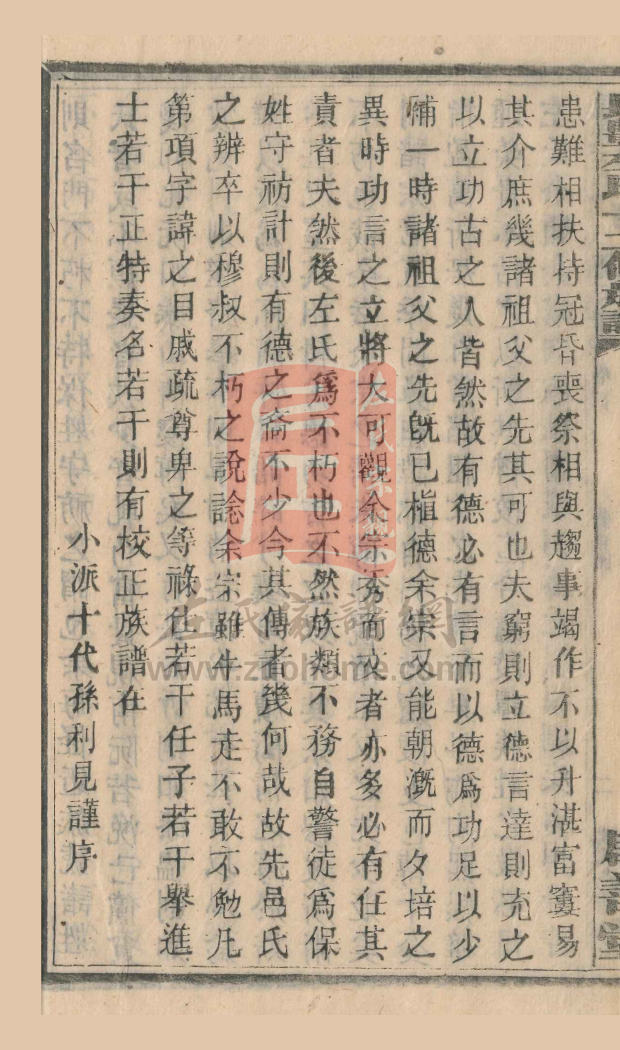 患難相扶持冠昏喪祭相與趨事竭作不以升湛富窶易
其介庶幾諸祖父之先其可也夫窮則立德言達則充之
以立功古之人皆然故有德必有言而以德爲功足以少
補一時諸祖父之先旣已植德余宗又能朝漑而夕培之
異時功言之立將大可觀余宗秀而文者亦多必有任其
責者夫然後左氏爲不朽也不然族類不務自警徒爲保
姓守祊計則有德之裔不少今其傳者幾何哉故先邑氏
之辨卒以穆叔不朽之說諗余宗雖牛馬走不敢不勉凡
第項字諱之目戚疏尊卑之等祿仕若干任子若干舉進
士若干正特奏名若干則有校正族譜在
小派十代孫利見謹序
家譜網
www.zupuhome.com